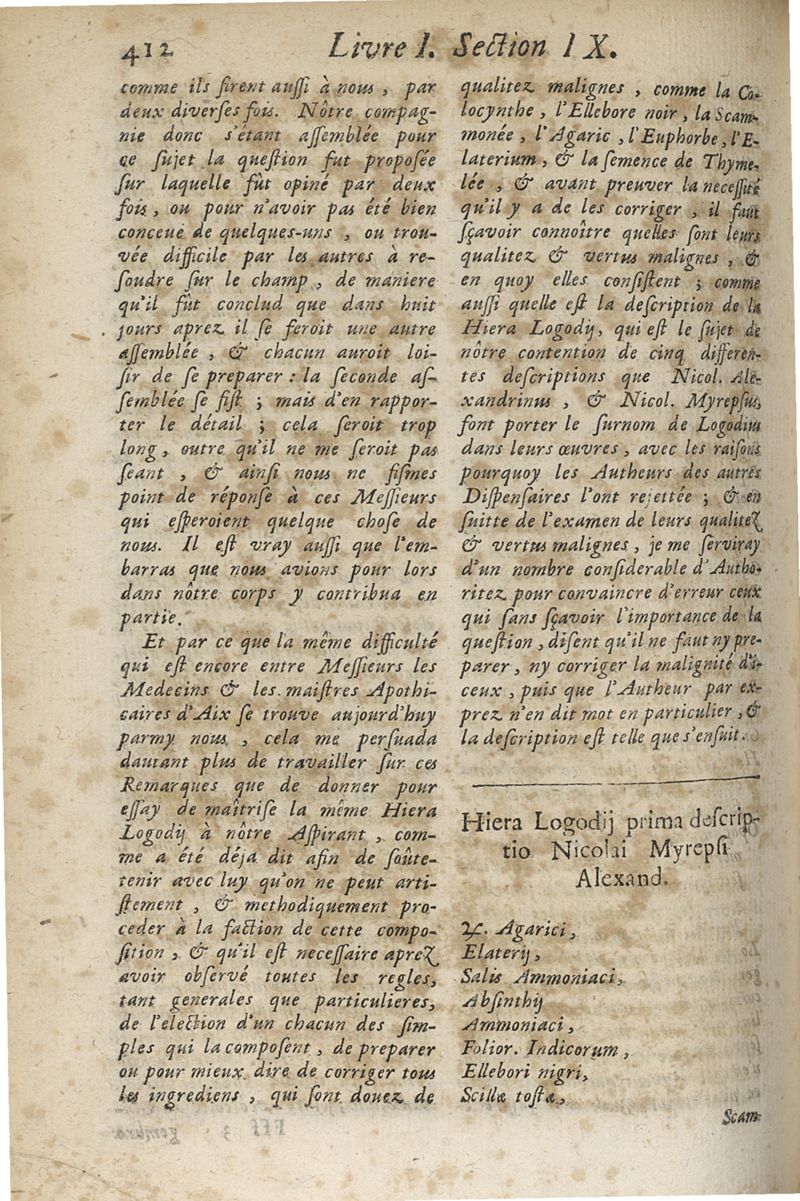 412 Livre I. Section IX.
comme ils firent aussi à nous, par
deux diverses fois. Nôtre compag-
nie donc s'étant assemblée pour
ce sujet la question fut proposée
sur laquelle fût opiné par deux
fois, ou pour n'avoir pas été bien
conceuë de quelques-uns, ou trou-
vée difficile par les autres à re-
soudre sur le champ, de maniere
qu'il fût conclud que dans huit
jours aprez il se feroit une autre
assemblée, & chacun auroit loi-
sir de se preparer : la seconde as-
semblée se fist ; mais d'en rappor-
ter le détail ; cela seroit trop
long, outre qu'il ne me seroit pas
seant, & ainsi nous ne fismes
point de réponse à ces Messieurs
qui esperoient quelque chose de
nous. Il est vray aussi que l'em-
barras que nous avions pour lors
dans nôtre corps y contribua en
partie.
Et par ce que la même difficulté
qui est encore entre Messieurs les
Medecins & les maistres Apothi-
caires d'Aix se trouve aujourd'huy
parmy nous, cela me persuada
dautant plus de travailler sur ces
Remarques que de donner pour
essay de maîtrise la même Hiera
Logodij à nôtre Aspirant, com-
me a été déja dit afin de soûte-
tenir avec luy qu'on ne peut arti-
stement, & methodiquement pro-
ceder à la faction de cette compo-
sition, & qu'il est necessaire aprez
avoir observé toutes les regles,
tant generales que particulieres,
de l'election d'un chacun des sim-
ples qui la composent, de preparer
ou pour mieux dire de corriger tous
les ingrediens, qui sont douez de
qualitez malignes, comme la Co-
locynthe, l'Ellebore noir, la Scam-
monée, l'Agaric, l'Euphorbe, l'E-
laterium, & la semence de Thyme-
lée, & avant preuver la necessité
qu'il y a de les corriger, il faut
sçavoir connoître quelles sont leurs
qualitez & vertus malignes, &
en quoy elles consistent ; comme
aussi quelle est la description de la
Hiera Logodij, qui est le sujet de
nôtre contention de cinq differen-
tes descriptions que Nicol. Ale-
xandrinus, & Nicol. Myrepsus,
font porter le surnom de Logodius
dans leurs œuvres, avec les raisons
pourquoy les Autheurs des autres
Dispensaires l'ont rejettée ; & en
suitte de l'examen de leurs qualitez
& vertus malignes, je me serviray
d'un nombre considerable d'Autho-
ritez pour convaincre d'erreur ceux
qui sans sçavoir l'importance de la
question, disent qu'il ne faut ny pre-
parer, ny corriger la malignité d'i-
ceux, puis que l'Autheur par ex-
prez n'en dit mot en particulier, &
la description est telle que s'ensuit.
Hiera Logodij prima descrip-
tio Nicolai Myrepsi
Alexand.
℞. Agarici,
Elaterij,
Salis Ammoniaci,
Absinthij
Ammoniaci,
Folior. Indicorum,
Ellebori nigri,
Scillæ tostæ,
Scam-